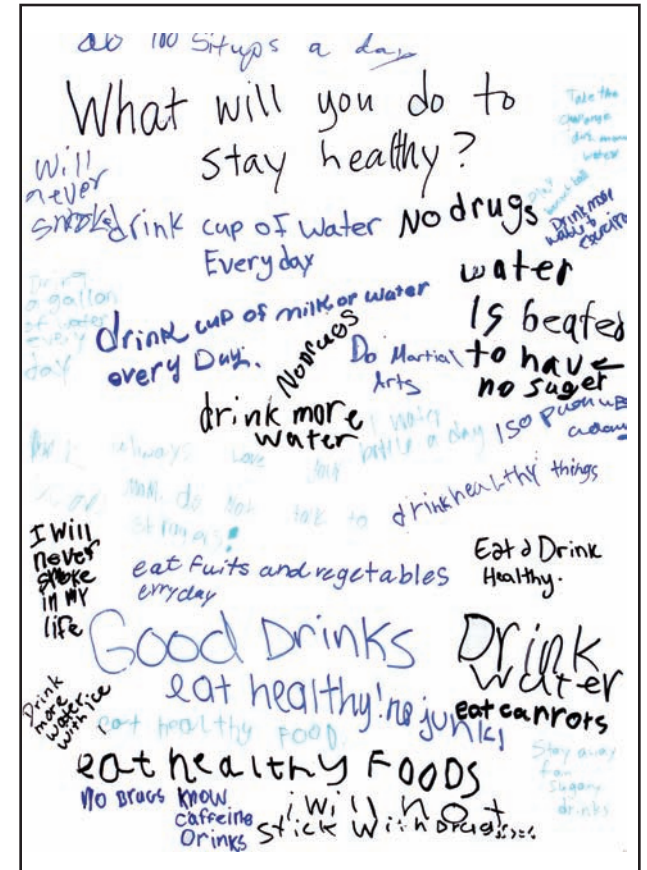 do 100 Situps a day
What will you do to
stay healthy?
Take the
challenge
drink more
water
Will
never
smoke
drink cup of water
Everyday
No drugs
Drink more
water &
exercise
Drink
a gallon
of water
every
day
drink cup of milk or water
every Day.
No Drugs
Do Martial
Arts
water
Is beated
to have
no suger
drink more
water
1 water
bottle a day
150 push ups
a day
always
love
your
do not talk to
drink healthy things
I Will
never
smoke
in my
life
eat fuits and vegetables
evryday
Eat & Drink
Healthy.
Good Drinks
Drink
water
eat healthy! no junk!
eat carrots
Drink
more
water.
with ice
eat healthy FOOD.
eat healthy FOODS
Stay away
from
sugary
drinks
No Drugs know
caffeine
Drinks
i will not
stick with Drugs